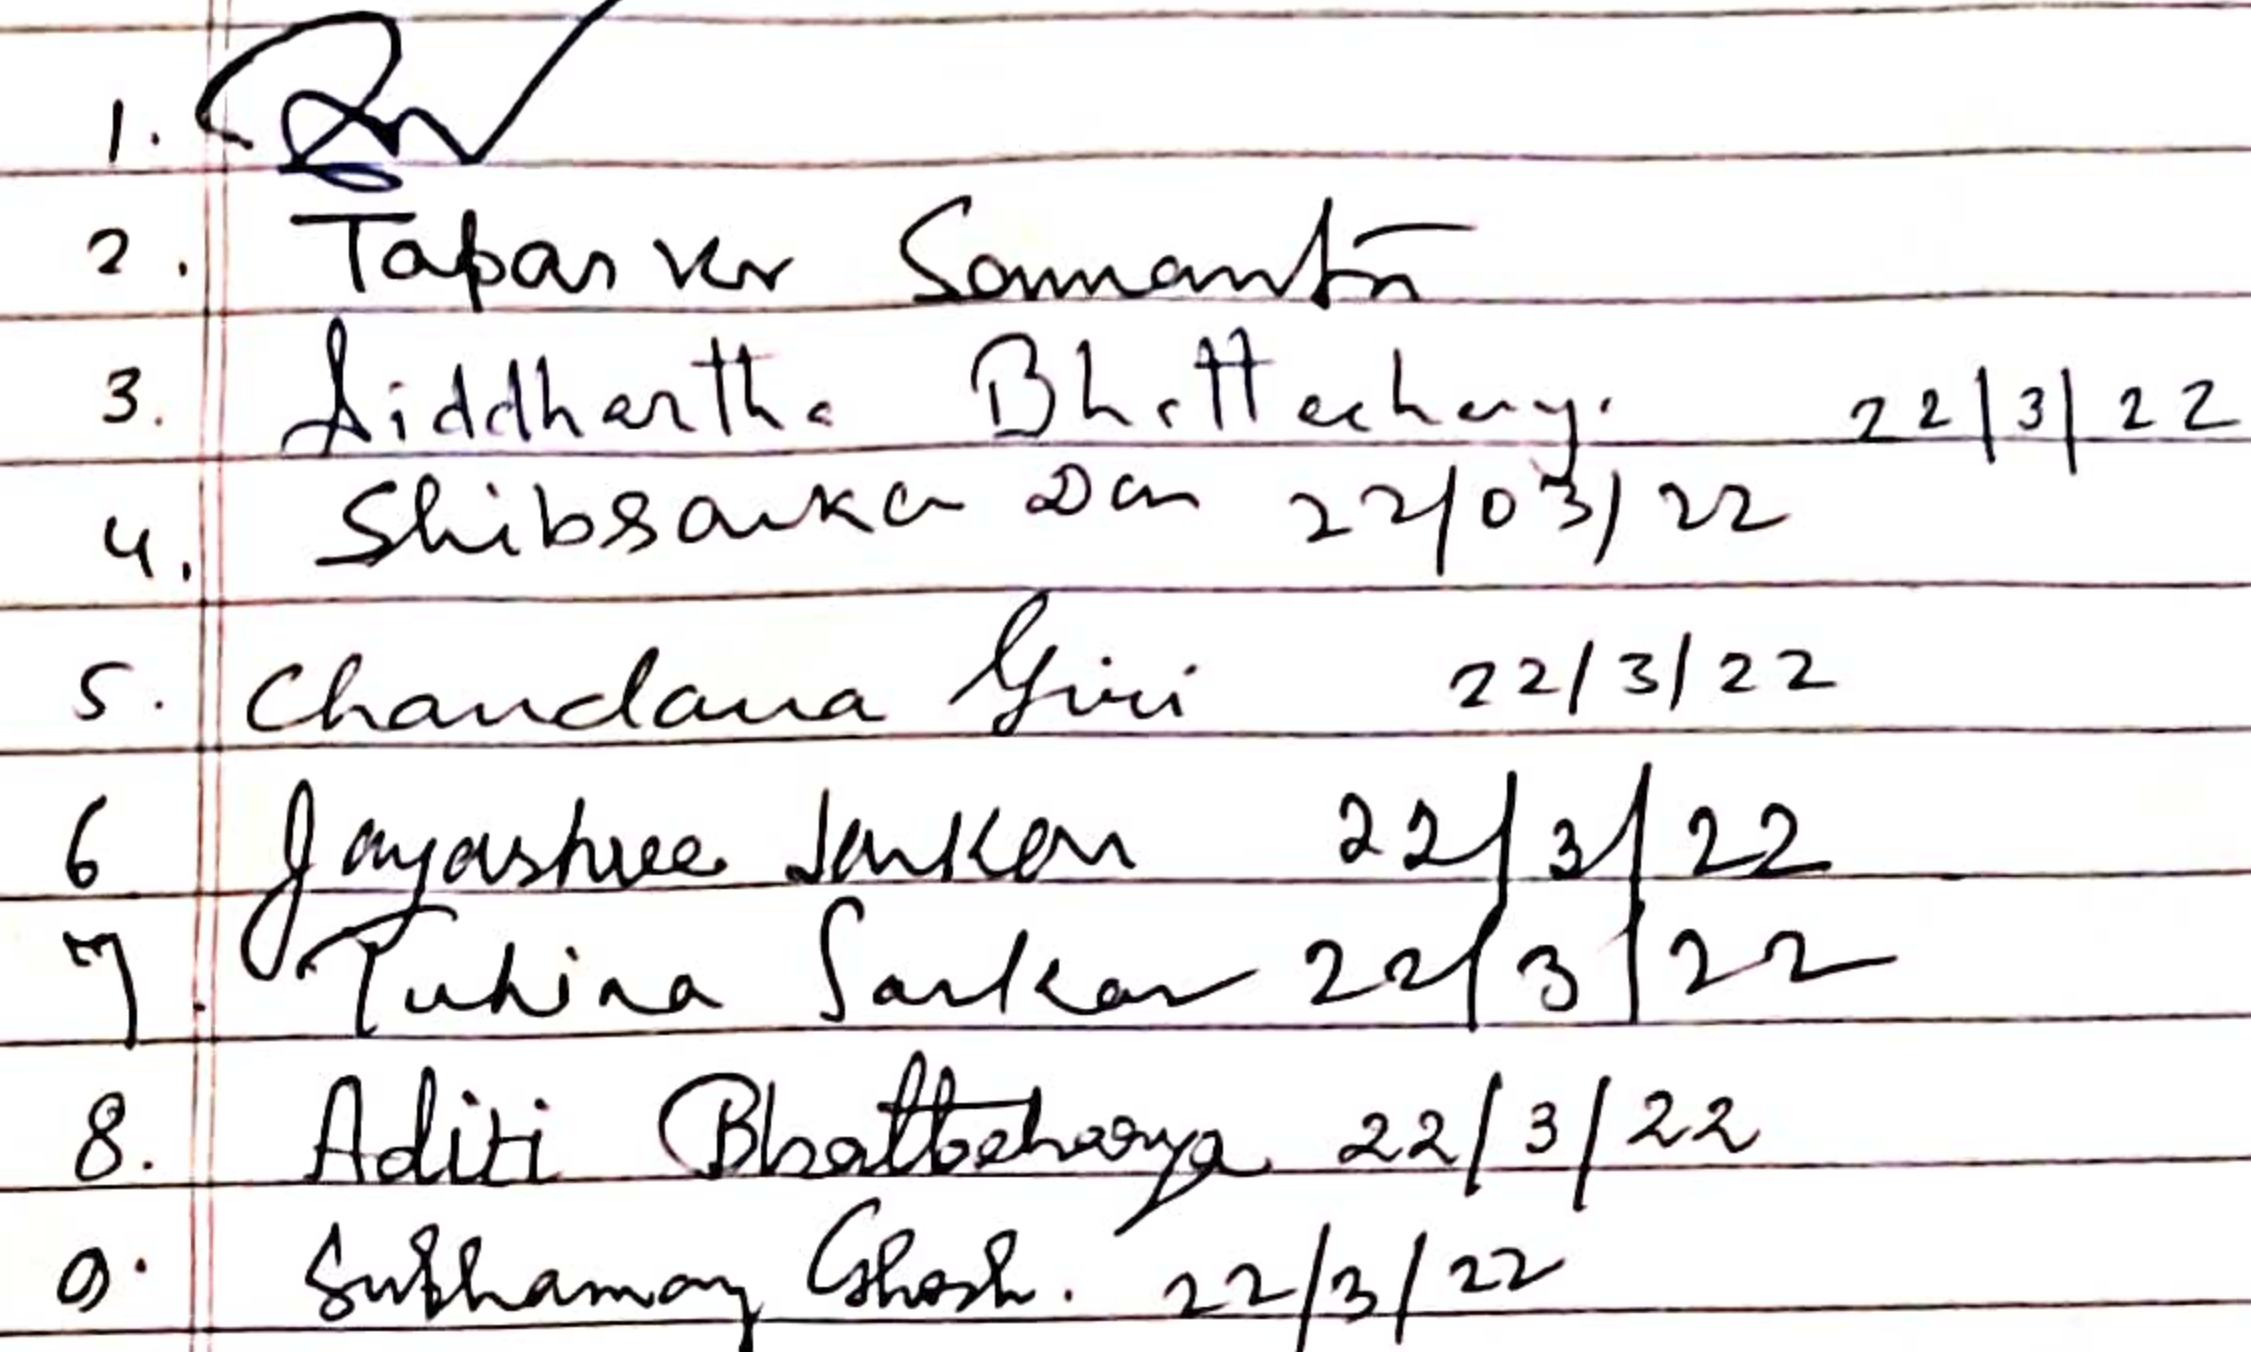 1.
2. Tapas Kr Samanta
3. Siddhartha Bhattacharya. 22/3/22
4. Shibsankar Das 22/03/22
5. Chandana Giri 22/3/22
6 Jayashree Sarkar 22/3/22
7. Tuhina Sarkar 22/3/22
8. Aditi Bhattacharya 22/3/22
9. Subhamoy Ghosh. 22/3/22